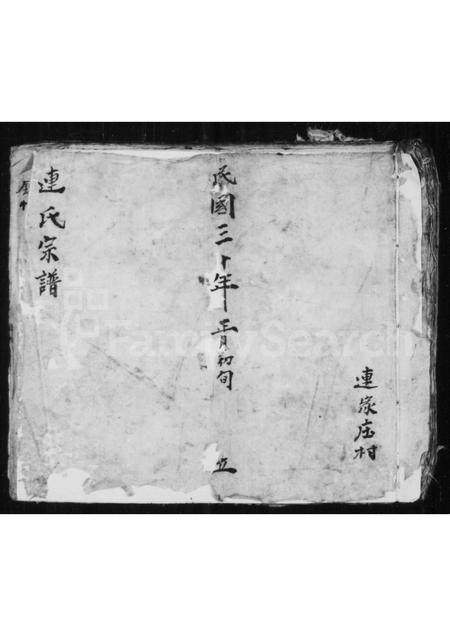 連家庄村
民國三十年正月初旬 立
連氏宗譜
FamilySearch